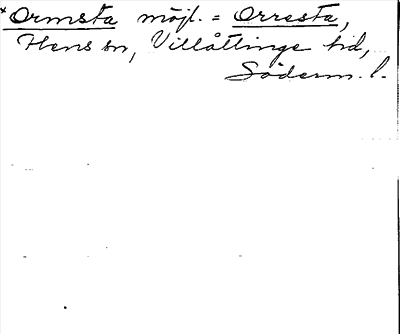 *Ormsta möjl. = Orresta,
Hens sn, Villåttinge hd,
Söderm. l.